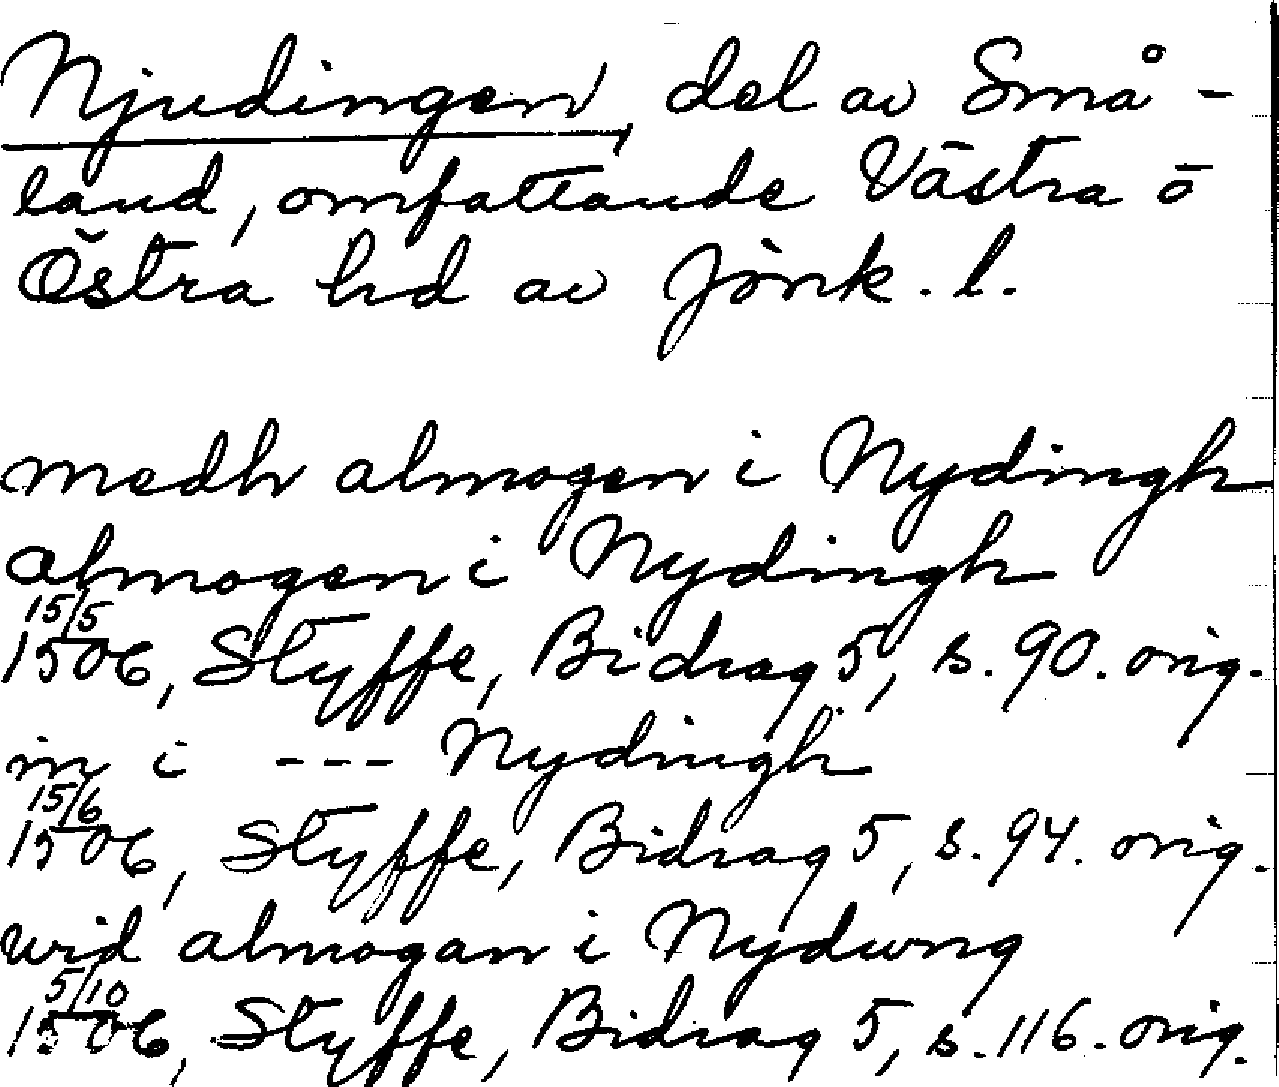 Njudingen, del av Små-
land, omfattande Västra o
Östra hd av Jönk. l.
medh almogen i Nydingh
almogen i Nydingh
15/5
1506, Styffe, Bidrag 5, s. 90. orig.
in i --- Nydingh
15/6
1506, Styffe, Bidrag 5, s. 94. orig.
wid almogan i Nydwng
5/10
1506, Styffe, Bidrag 5, s. 116. orig.